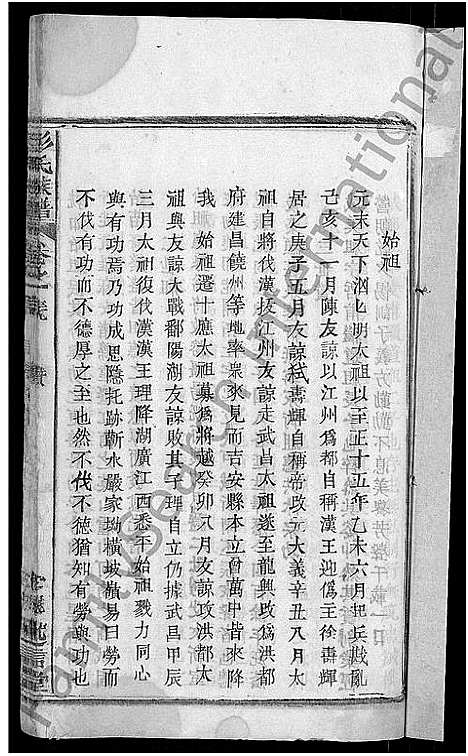 始祖
元末天下洶匕明太祖以至正十五年乙未六月起兵戡亂
己亥十一月陳友諒以江州爲都自稱漢王迎爲主徐壽輝
居之庚子五月友諒弒壽輝自稱帝改元大義辛丑八月太
祖自將伐漢拔江州友諒走武昌太祖遂至龍興改爲洪都
府建昌饒州等地率衆來見而吉安縣本立曾萬中皆來降
我 始祖遷十應太祖募爲將越癸卯八月友諒攻洪都太
祖與友諒大戰鄱陽湖友諒敗其子理自立仍據武昌甲辰
三月太祖復伐漢漢王理降湖廣江西悉平始祖戮力同心
與有功焉乃功成思隱托跡蘄水嚴家坳橫坡 易曰勞而
不伐有功而不德厚之至也然不伐不德猶知有勞與功也
彭氏族譜
FamilySearch International